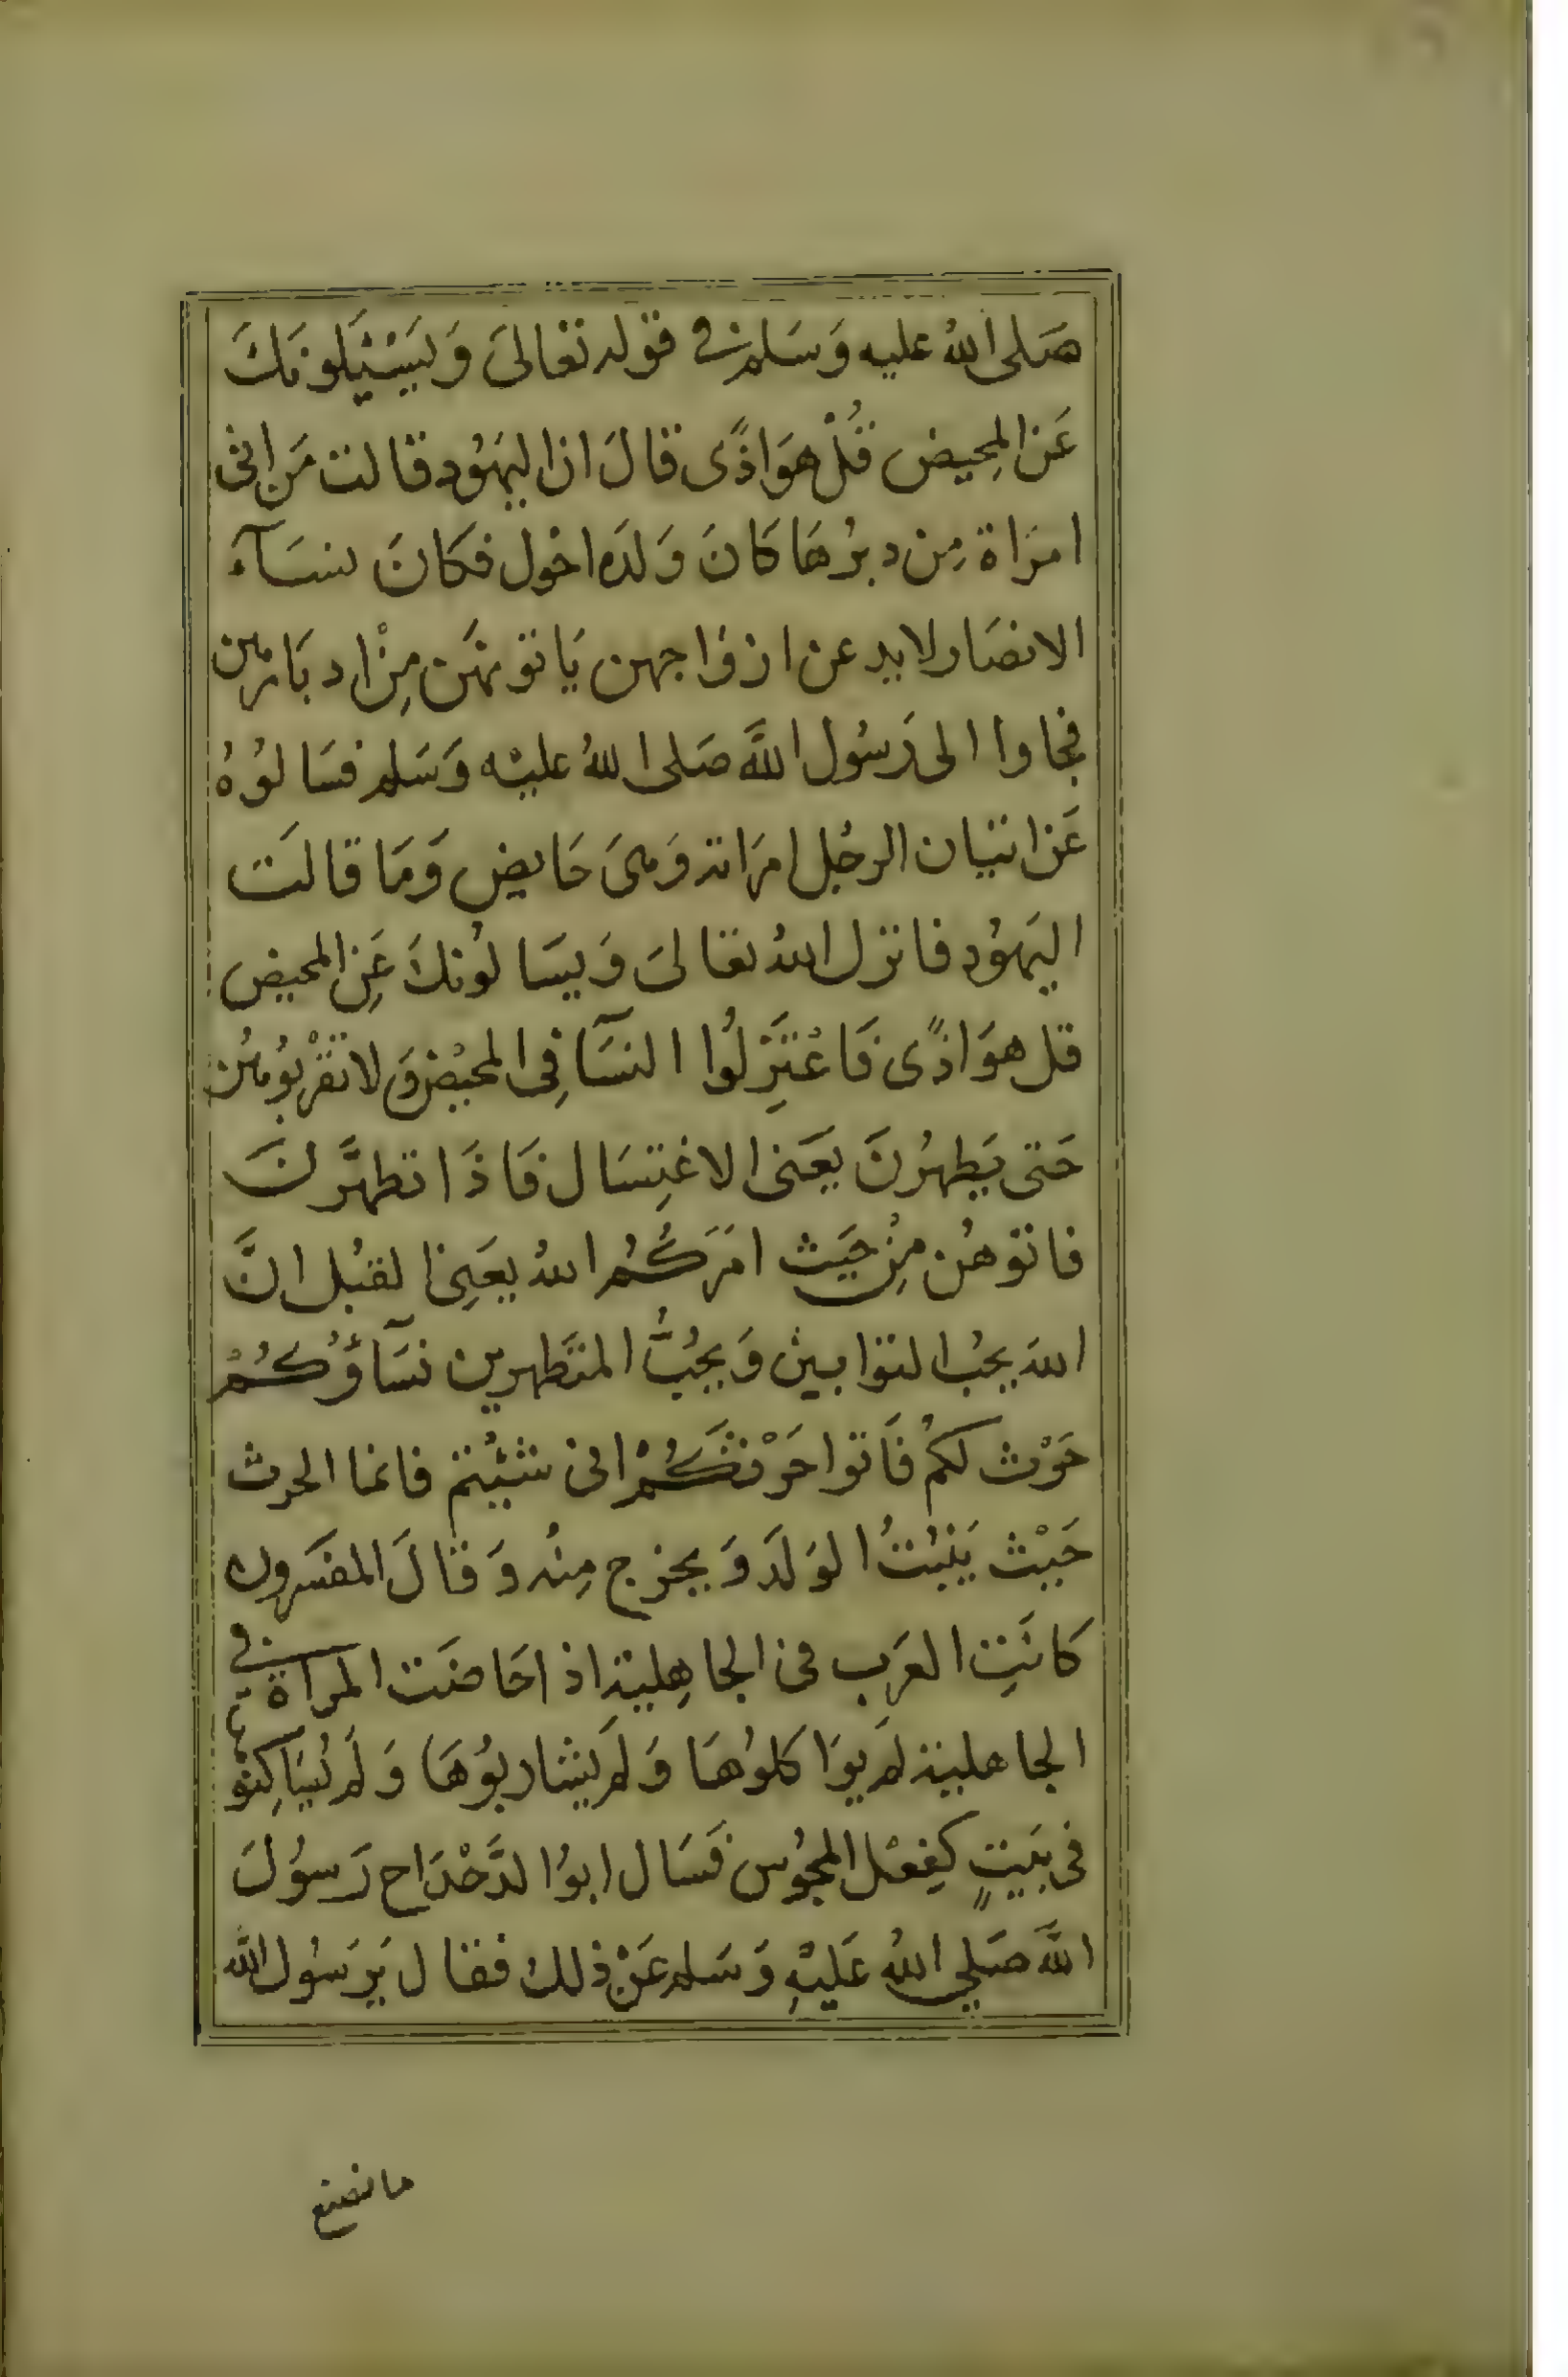 صَلى اللهُ عليه وَسَلم في قوله تعَالىَ وَيَسْئَلونَكَ
عَن المِحيض قُلْ هوَ اذًى قالَ ان اليهَوُد قالت مَن اتى
امرَاة مِن دبرُهَا كانَ وَلدَه احْول فكانَ نسَآء
الانصَار لا يدعن ازوَاجهن يَاتونهَن مِنْ ادبَارهن
فجاوا الى رَسُول اللَّه صَلى اللهُ عليْه وَسَلم فسَالوُهُ
عَن اتيان الرجُل امرَاته وَهىَ حَايض وَمَا قالَت
اليهَوُد فانزل اللهُ تعَالىَ وَيسَالوُنكَ عَنِ المحيض
قل هوَ اذًى فَاعْتَزِلُوا النسَآ فِى المحيْض وَلا تقْرَبُوهُن
حَتى يَطهرُنَ يعَنى الاغتِسَال فَاذَا تطهَّرنَ
فاتوهُن مِنْ حَيث امَرَكُمُ اللهُ يعَنِى القبُل انَّ
اللهَ يحبُ التوابين وَيحِبُّ المتَطهرين نسَآؤُكُمْ
حَرْث لكمُ فَاتوا حَرْثَكُمْ انى شئْتم فانما الحرث
حَيْث يَنبُتُ الوَلَد وَيخرج مِنْه وَقالَ المفسَرون
كانَتِ العَرَب فى الجاهِلية اذا حَاضَت المرأة في
الجاهلية لَم يوَاكلوُهَا وَلَم يشَاربوُهَا وَلَم يُسَاكِنوْ
فى بَيتٍ كفِعْل المجوُس فَسَال ابوُ الدَّحْدَاح رَسوُلَ
اللَّه صَلى اللهُ عَليْهِ وَسَلم عَنْ ذلك فقال يَرَسُول الله
ما نصنع